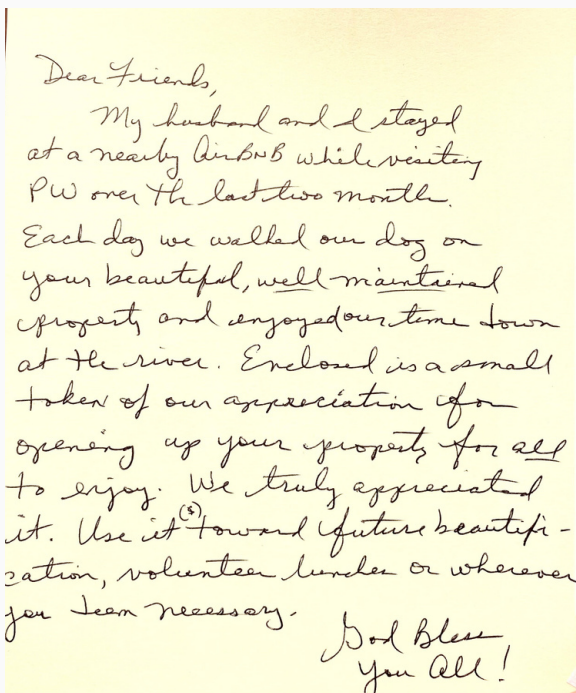 Dear Friends,
My husband and I stayed
at a nearby AirBNB while visiting
PW over the last two month.
Each day we walked our dog on
your beautiful, well-maintained
property and enjoyed our time down
at the river. Enclosed is a small
token of our appreciation for
opening up your property for all
to enjoy. We truly appreciated
it. Use it ($) toward future beautifi-
cation, volunteer lunches or wherever
you deem necessary.
God Bless
You All!